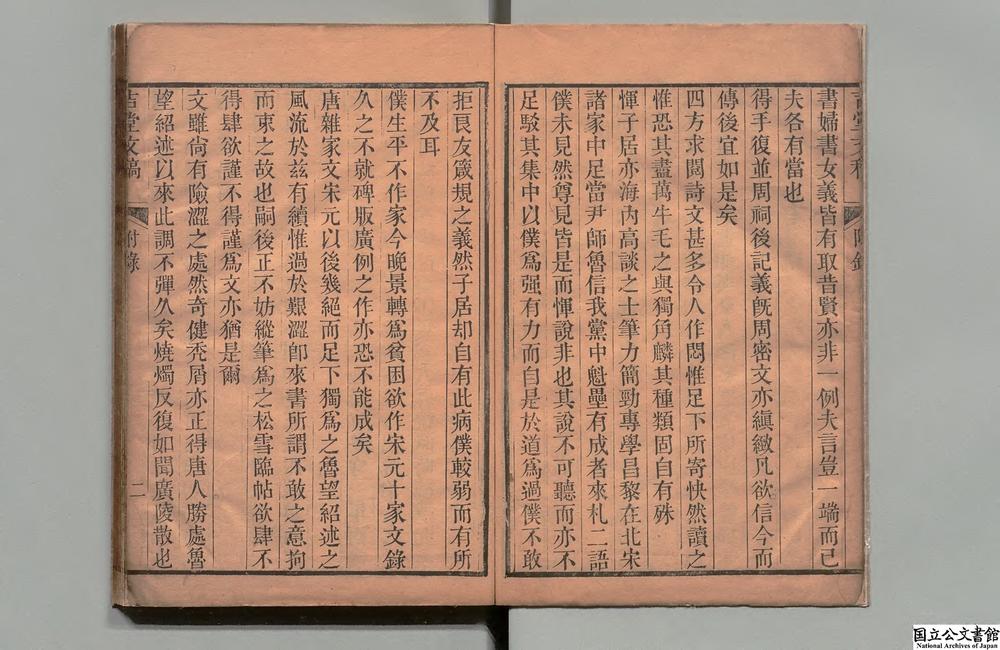 書婦書女義皆有取昔賢亦非一例夫言豈一端而已
夫各有當也
得手復並周祠後記義旣周密文亦縝緻凡欲信今而
傳後宜如是矣
四方求閱詩文甚多令人作悶惟足下所寄快然讀之
惟恐其盡萬牛毛之與獨角麟其種類固自有殊
惲子居亦海內高談之士筆力簡勁專學昌黎在北宋
諸家中足當尹師魯信我黨中魁壘有成者來札二語
僕未見然尊見皆是而惲說非也其說不可聽而亦不
足駁其集中以僕爲强有力而自是於道爲過僕不敢
拒良友箴規之義然子居却自有此病僕較弱而有所
不及耳
僕生平不作家今晚景轉爲貧困欲作宋元十家文錄
久之不就碑版廣例之作亦恐不能成矣
唐雜家文宋元以後幾絕而足下獨爲之魯望紹述之
風流於兹有續惟過於艱澀卽來書所謂不敢之意拘
而束之故也嗣後正不妨縱筆爲之松雪臨帖欲肆不
得肆欲謹不得謹爲文亦猶是爾
文雖尙有險澀之處然奇健禿屑亦正得唐人勝處魯
望紹述以來此調不彈久矣燒燭反復如聞廣陵散也
堂文稿
附錄
二
国立公文書館
National Archives of Japan